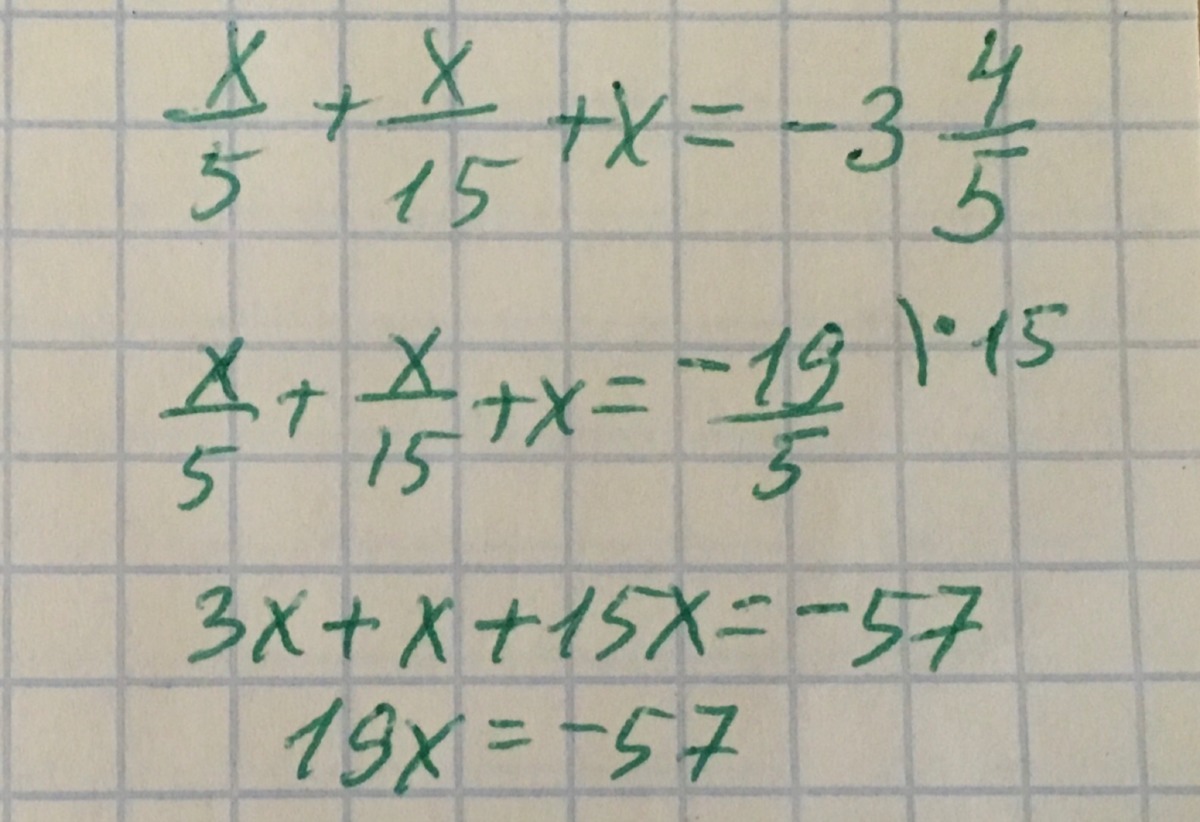 x/5 + x/15 + x = -3 4/5
x/5 + x/15 + x = -19/5 | · 15
3x + x + 15x = -57
19x = -57